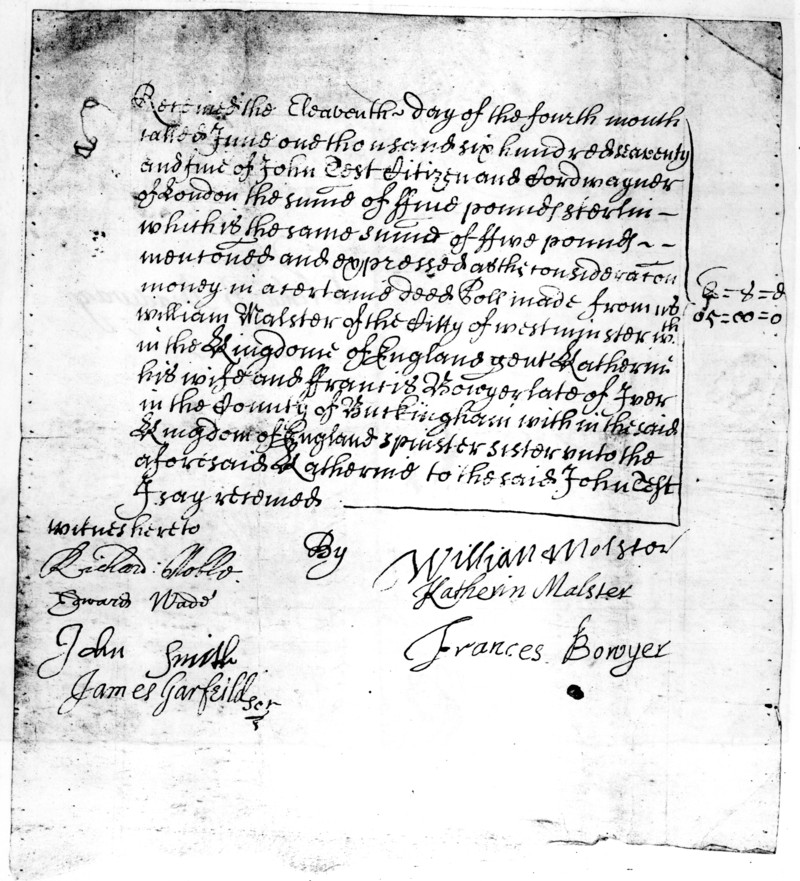 Receiued the Eleaventh day of the fourth month
called June one thousand six hundred seaventy
and fiue of John Test Citizen and Cordwagner
of London the summe of ffiue pounds sterlin
which is the same summe of ffiue pounds
mentoned and expressed as the consideracon
money in a certaine deed Poll made from us
William Malster of the Citty of westminster wth
in the Kingdome of England gent Katherin
his wife and ffrancis Bowyer late of Iver
in the County of Buckingham with in the said
Kingdom of England spinster sister vnto the
aforesaid Katherine to the said John Test
I say receiued
£ = S = d
05 = 00 = 0
witnes hereto
By
Richard
Edward Wade
John Smith
James Garfeild scr
William Malster
Katherin Malster
Frances Bowyer